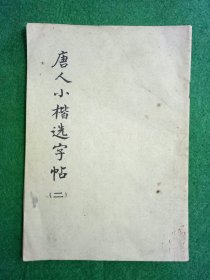 唐人小楷选字帖
（二）